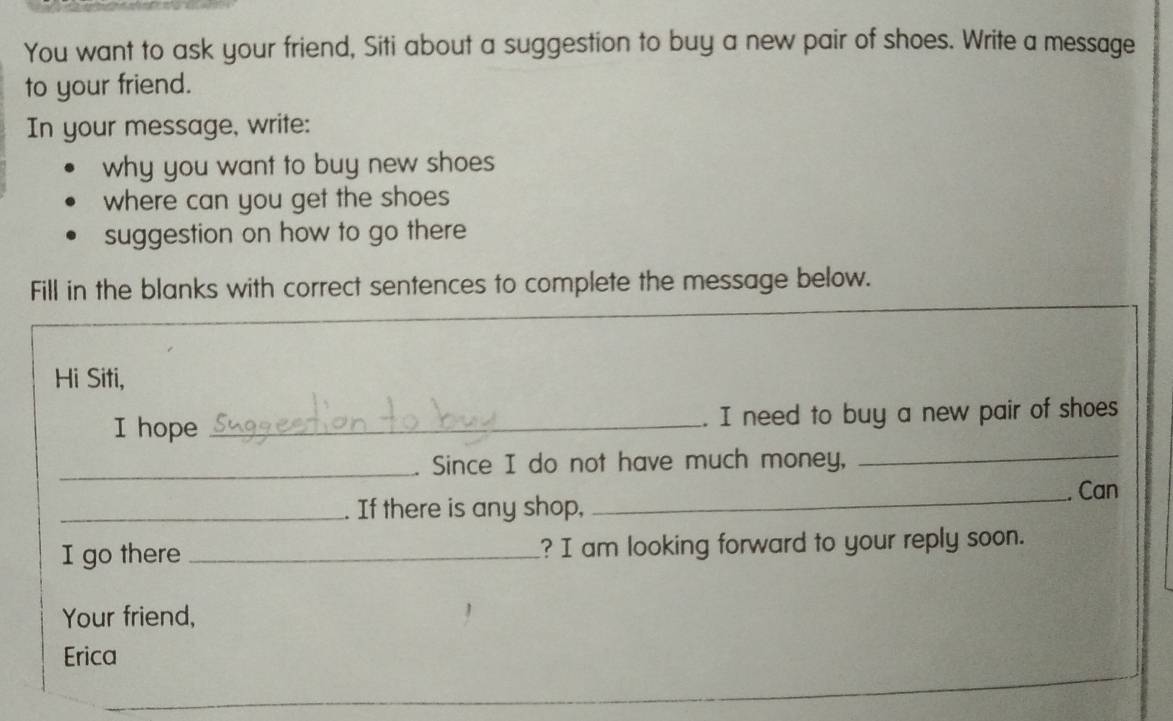 You want to ask your friend, Siti about a suggestion to buy a new pair of shoes. Write a message
to your friend.
In your message, write:
• why you want to buy new shoes
• where can you get the shoes
• suggestion on how to go there
Fill in the blanks with correct sentences to complete the message below.
Hi Siti,
I hope Suggestion to buy. I need to buy a new pair of shoes
____. Since I do not have much money, ____
____. If there is any shop, ____. Can
I go there ____? I am looking forward to your reply soon.
Your friend,
Erica